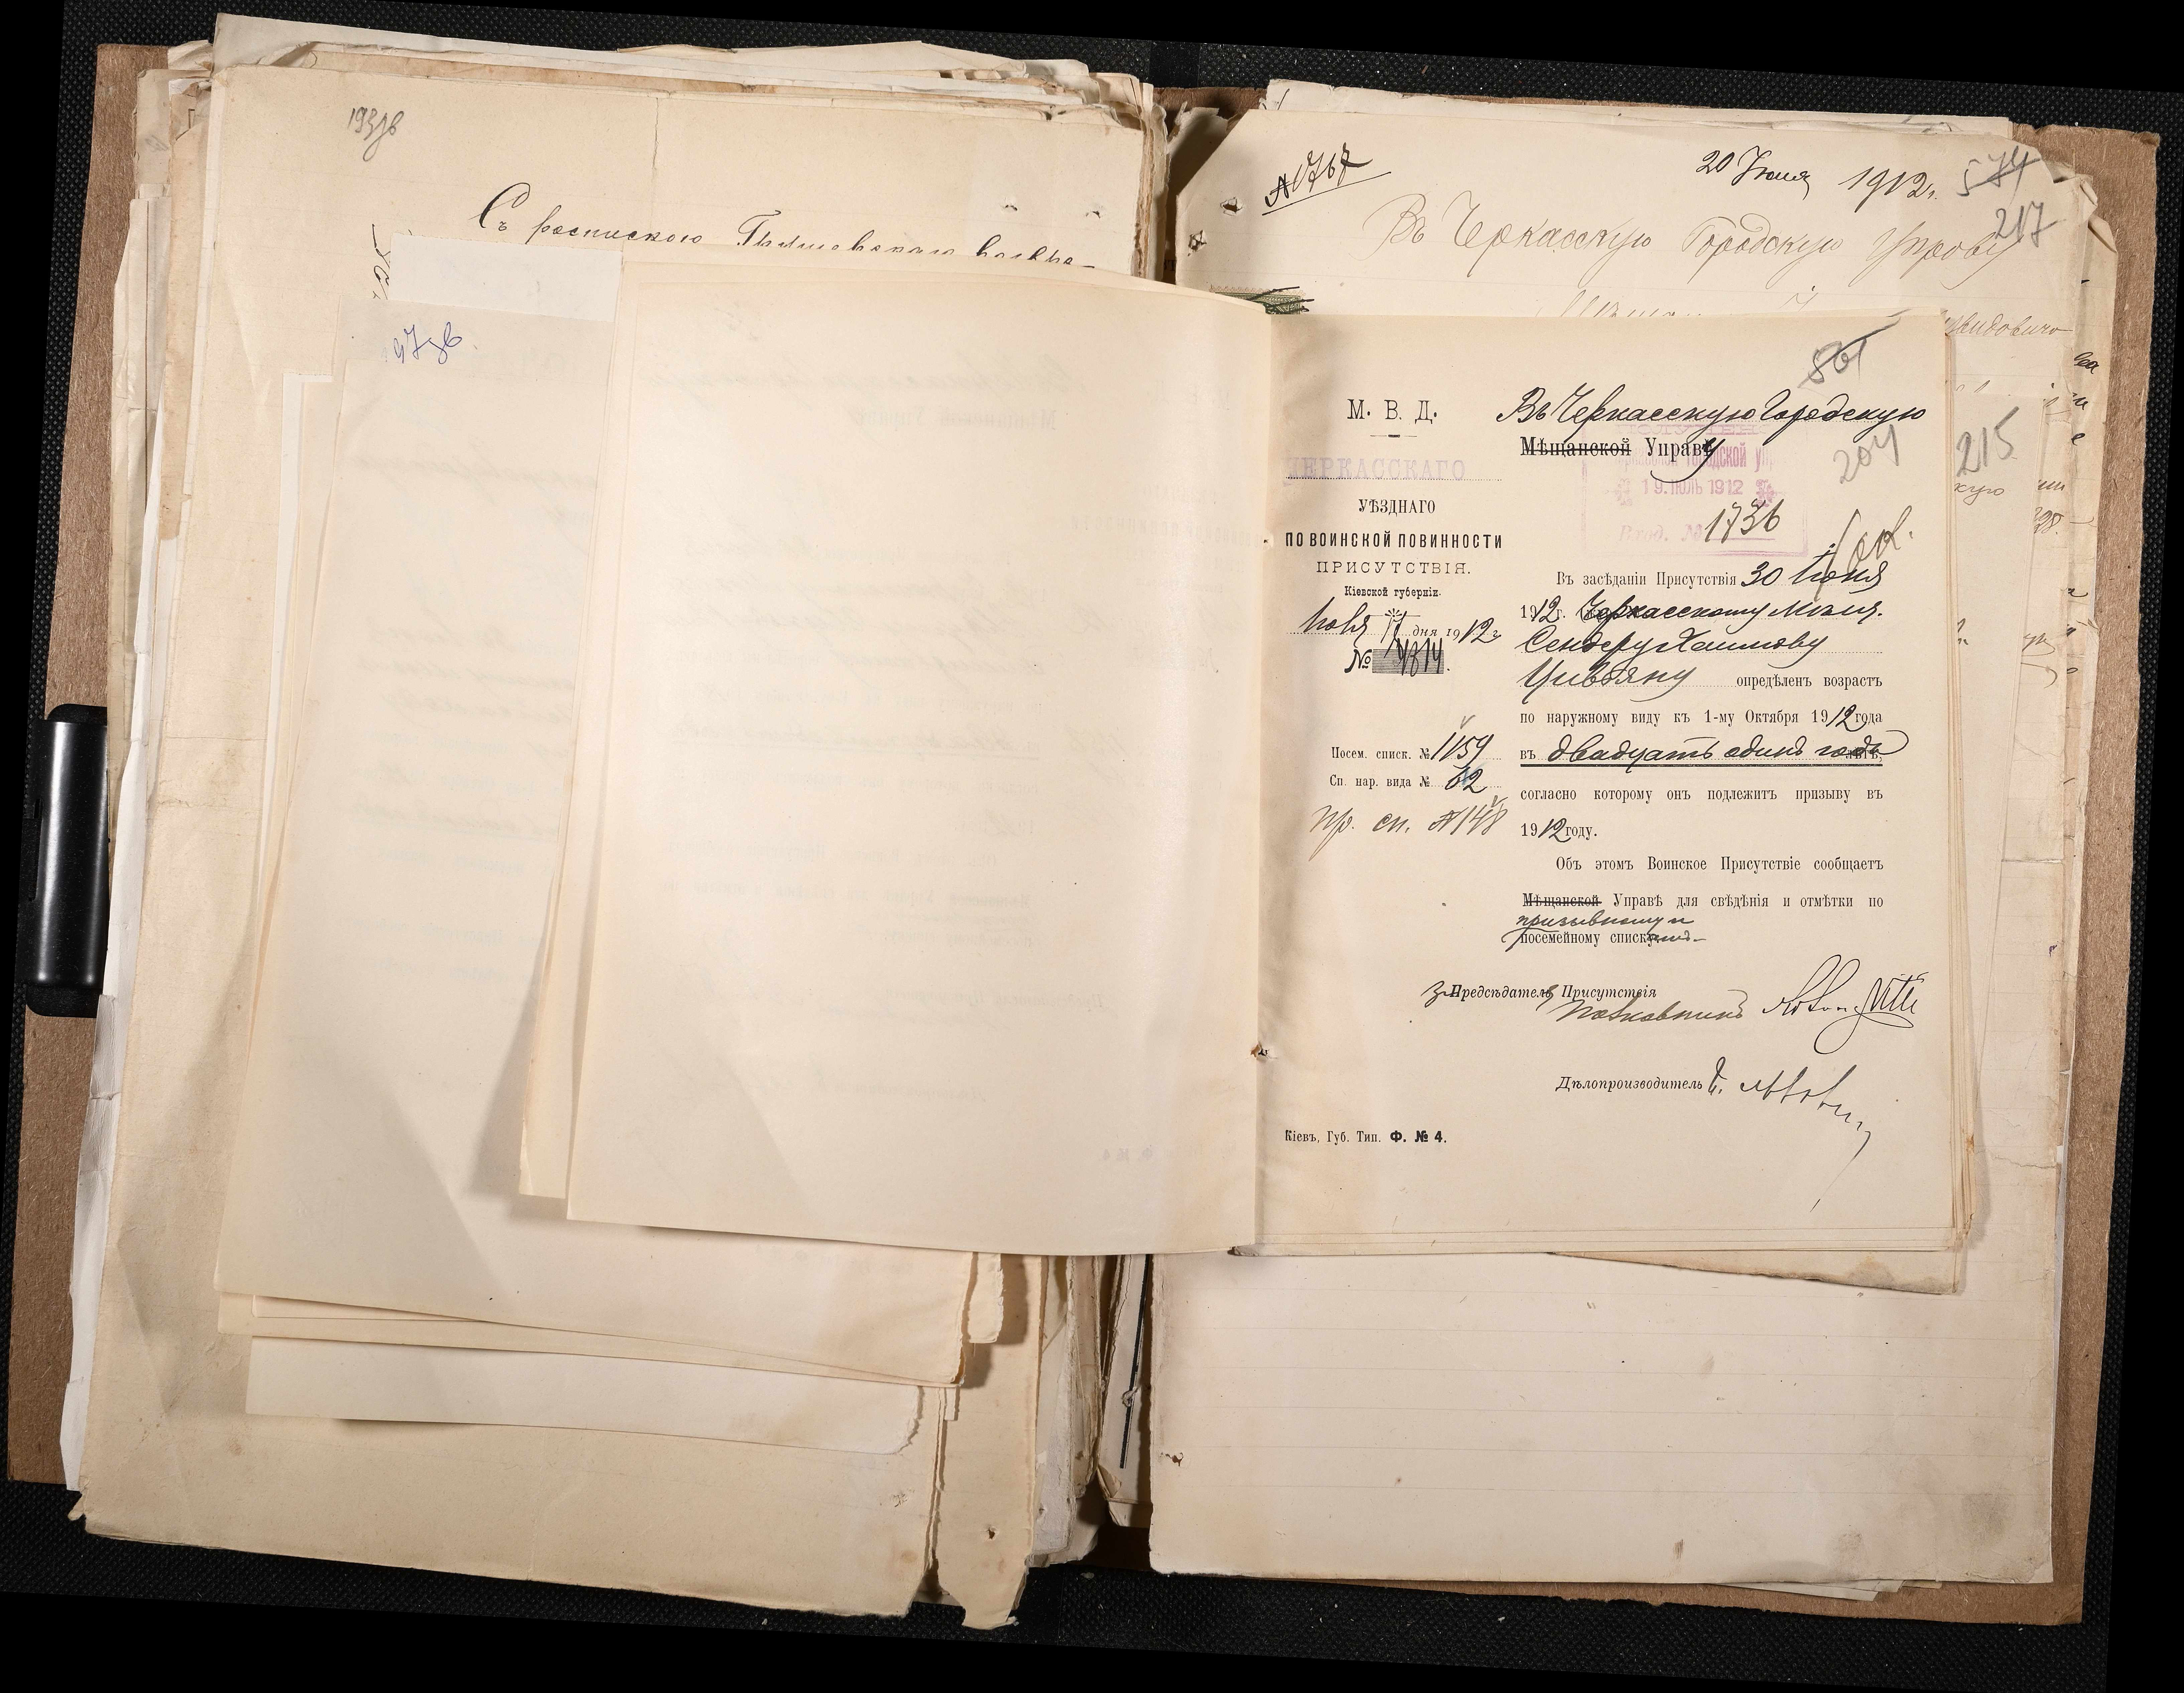 193зв
Съ роспискою
97зв
20 Июля 1912 г.
574
217
Въ Черкасскую Городскую Управу
215
501
204
М. В. Д.
ЧЕРКАССКАГО
УѢЗДНАГО
ПО ВОИНСКОЙ ПОВИННОСТИ
ПРИСУТСТВІЯ.
Кіевской губерніи.
дня 1912 г.
№ 4814.
Посем. списк. № 1159
Сп. нар. вида № 62
Пр. сп. № 148
Въ Черкасскую Городскую
Мѣщанской Управу
19. ІЮЛЬ 1912
Вход. № 1736
Въ засѣданіи Присутствія 30 Іюня
1912 г. Черкасскому Мѣщ.
Сендеру Хаимову
Цивьяну опредѣленъ возрастъ
по наружному виду къ 1-му Октября 1912 года
въ двадцать одинъ годъ
согласно которому онъ подлежитъ призыву въ
1912 году.
Объ этомъ Воинское Присутствіе сообщаетъ
Мѣщанской Управѣ для свѣдѣнія и отмѣтки по
призывному и
посемейному списку
За Предсѣдателя Присутствія
Полковникъ
Дѣлопроизводитель
Кіевъ, Губ. Тип. Ф. № 4.